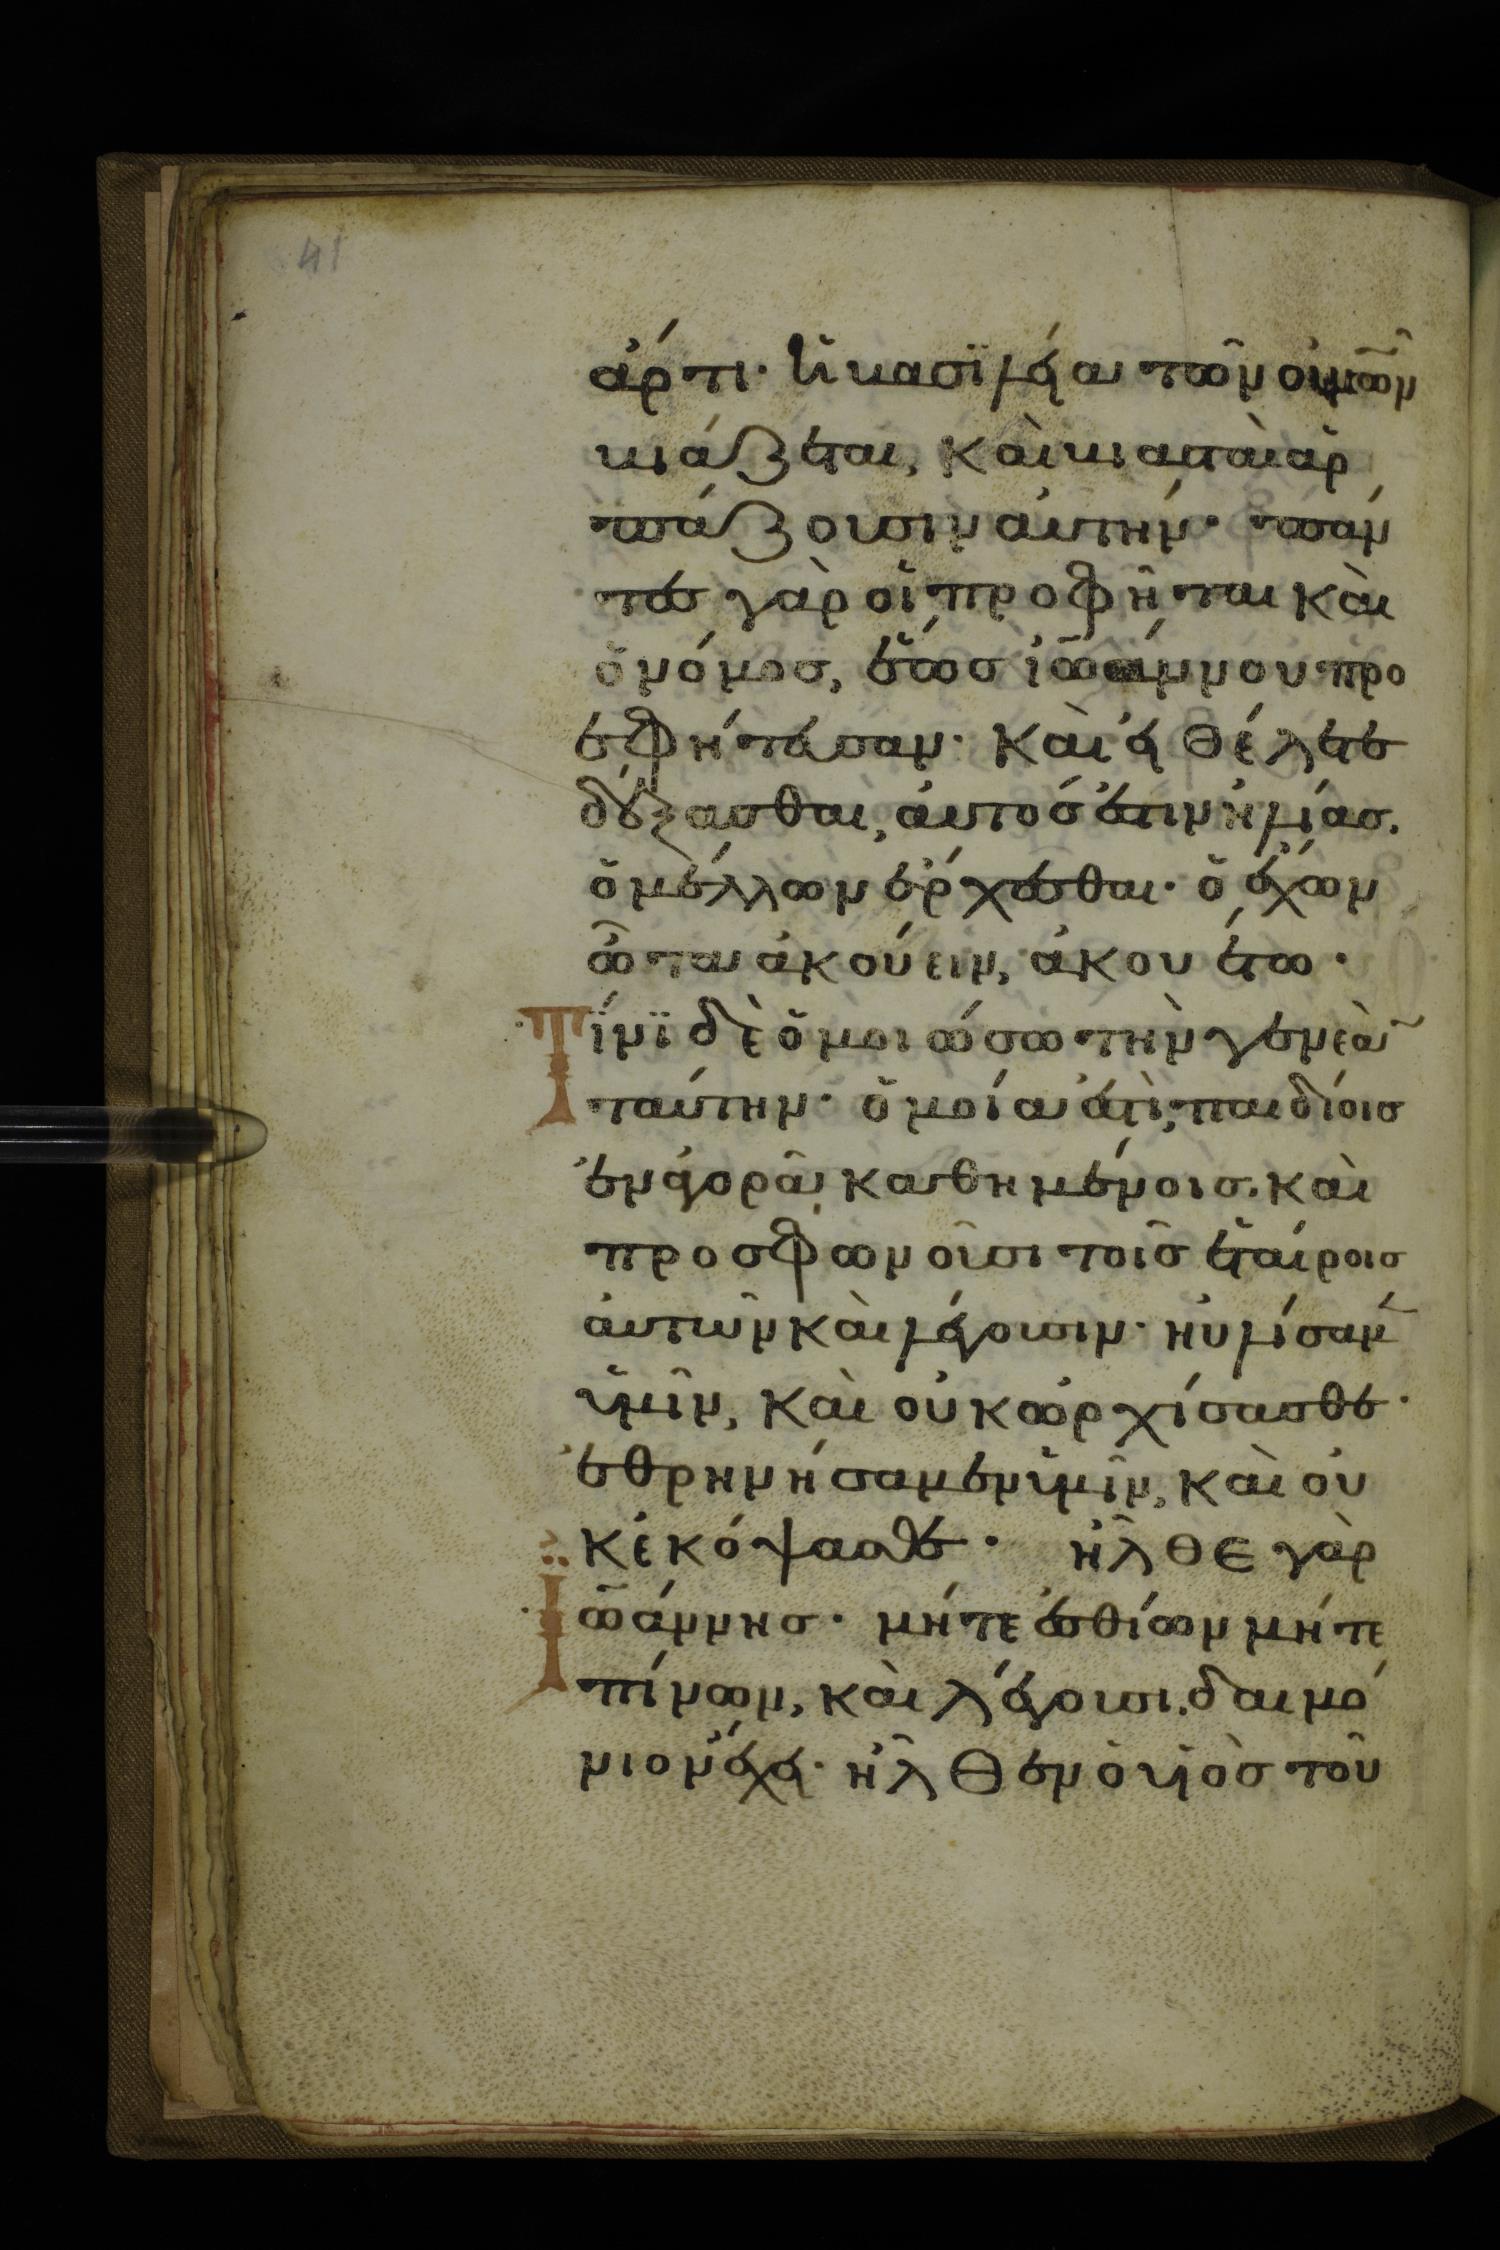 41
ἄρτι· ἡ βασϊλεία τῶν οὐνῶν
βιάζεται, καὶ βιασταὶ ἁρ
πάζουσιν αὐτήν· πάν
τες γὰρ οἱ προφῆται καὶ
ὁ νόμος, ἕως ἰωάννου προ
εφήτευσαν· καὶ εἰ θέλετε
δέξασθαι, αὐτός ἐστιν ἡλίας.
ὁ μέλλων ἔρχεσθαι· ὁ ἔχων
ὦτα ἀκούειν, ἀκουέτω·
Τίνϊ δὲ ὁμοιώσω τὴν γενεὰ
ταύτην· ὁμοία ἐστὶ παιδίοις
ἐν ἀγορᾶ καθημένοις. καὶ
προσφωνοῦσι τοῖς ἑταίροις
αὐτῶν καὶ λέγουσιν· ηὐλίσαμ
ὑμῖν, καὶ οὐκ ὠρχίσασθε·
ἐθρηνήσαμεν ὑμῖν, καὶ οὐ
κ ἐκόψασθε· ἦλθε γὰρ
Ἰωάννης· μήτε ἐσθίων μήτε
πίνων, καὶ λέγουσι. δαιμό
νιον ἔχει· ἦλθεν ὁ υἱὸς τοῦ